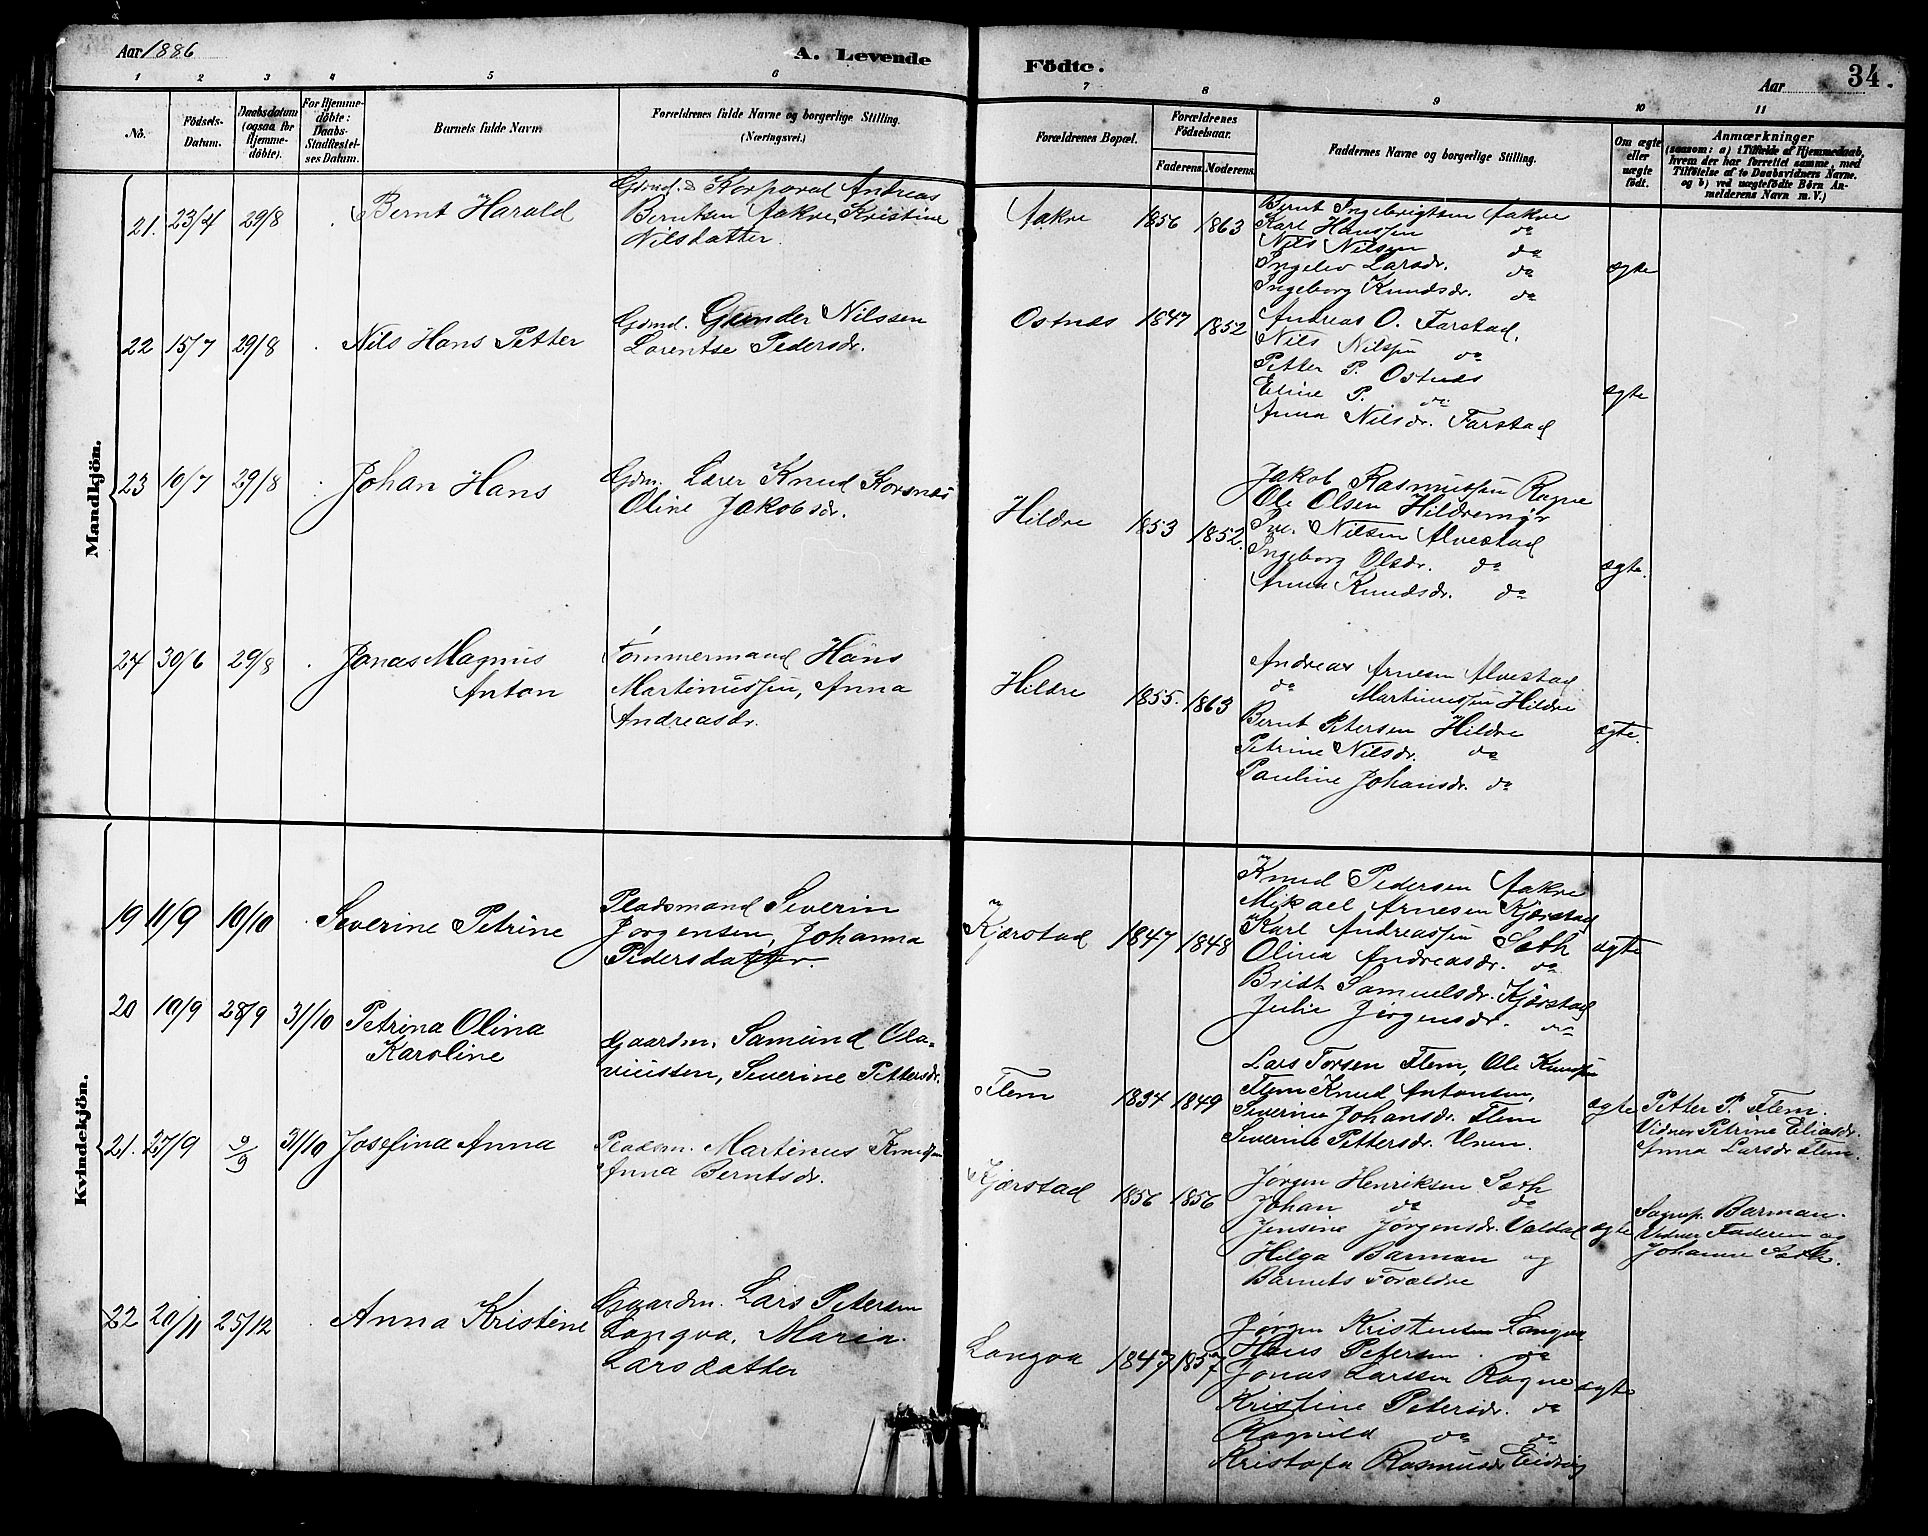 Aar 1886
A. Levende
Födte.
Aar
34.
1 2 3 4 5 6 7 8 9 10 11
No.
Födsels-Datum.
Daabsdatum (ogsaa for Hjemme-döbte).
For Hjemme-döbte: Daabs-Stadfæstel-ses Datum.
Barnets fulde Navn.
Forældrenes fulde Navne og borgerlige Stilling. (Næringsvei.)
Forældrenes Bopæl.
Forældrenes Födselsaar.
Faderens. Moderens.
Faddernes Navne og borgerlige Stilling.
Om ægte eller uægte födt.
Anmærkninger
(saasom: a) i Tilfælde af Hjemmedaab, hvem der har forrettet samme, med Tilföielse af to Daabsvidners Navne. og b) ved uægtefödte Börn An-melderens Navn m. V.)
Mandkjön.
21. 23/4 29/8 Bernt Harald
Gdmd. & Korporal Andreas
Berntsen Aakre, Kristine
Nilsdatter.
Aakre 1856 1863
Bernt Ingebrigtsen Aakre
Karl Hanssen do
Nils Nilsen do
Ingelev Larsdr. do
Ingeborg Knudsdr. do
ægte
22 15/7 29/8 Nils Hans Petter
Gdmd. Gunder Nilssen
Lorentse Pedersdr.
Ostnes 1847 1852
Andreas O. Farstad.
Nils Nilsen do
Petter P. Ostnes
Eline P. do
Anna Nilsdr. Farstad
ægte
23 10/7 29/8 Johan Hans
Gdm. Lærer Knud Korsnes
Oline Jakobsdr.
Hildre 1853 1852.
Jakob Rasmussen Rogne
Ole Olsen Hildremyr
Nilsen Alvestad
Ingeborg Olsdr. do
Anna Knudsdr. do
ægte.
24 30/6 29/8 Jonas Magnus
Anton
Tømmermand Hans
Martinussen, Anna
Andreasdr.
Hildre 1855. 1863
Andreas Arnesen Alvestad
do Martinussen Hildre
Bernt Petersen Hildre
Petrine Nilsdr. do
Pauline Johansdr. do
ægte.
Kvindekjön.
19 11/9 10/10 Severine Petrine
Pladsmand Severin
Jørgensen, Johanna
Pedersdatter.
Kjærstad 1847 1848
Knud Pedersen Aakre
Mikael Arnesen Kjærstad
Karl Andreassen Sæth
Olina Andreasdr. do
Bridt Samuelsdr. Kjærstad
Julie Jørgensdr. do
ægte
20 19/9 28/9 31/10 Petrina Olina
Karoline
Gaardm. Samund Ola-
viusen, Severine Pettersdr.
Flem 1854 1849
Lars Torsen Flem, Ole Knudsen
Flem Knud Antonsen,
Severine Johansdr. Flem
Severine Pettersdr. Uren.
ægte
Petter P. Flem.
Vidner Petrine Eliasdr.
Anna Larsdr Flem.
21. 27/9 31/10 Josefina Anna
Pladsm. Martinus Knudsen
Anna Berntsdr.
Kjærstad 1856 1856
Jørgen Henriksen Sæth
Johan do do
Jensine Jørgensdr. Valdal
Helga Barman og
Barnets Forældre
ægte
Sognep. Barman.
Vidner Faderen og
Johanne Sæth.
22 20/11 25/12 Anna Kristine
Gaardm. Lars Petersen
Longva, Maria
Larsdatter
Longva 1847 1857
Jørgen Kristensen Longva
Hans Petersen. do
Jonas Larssen Rogne
Kristine Petersdr. do
Ragnild do do
Kristofa Rasmusdr Eidsvig
ægte